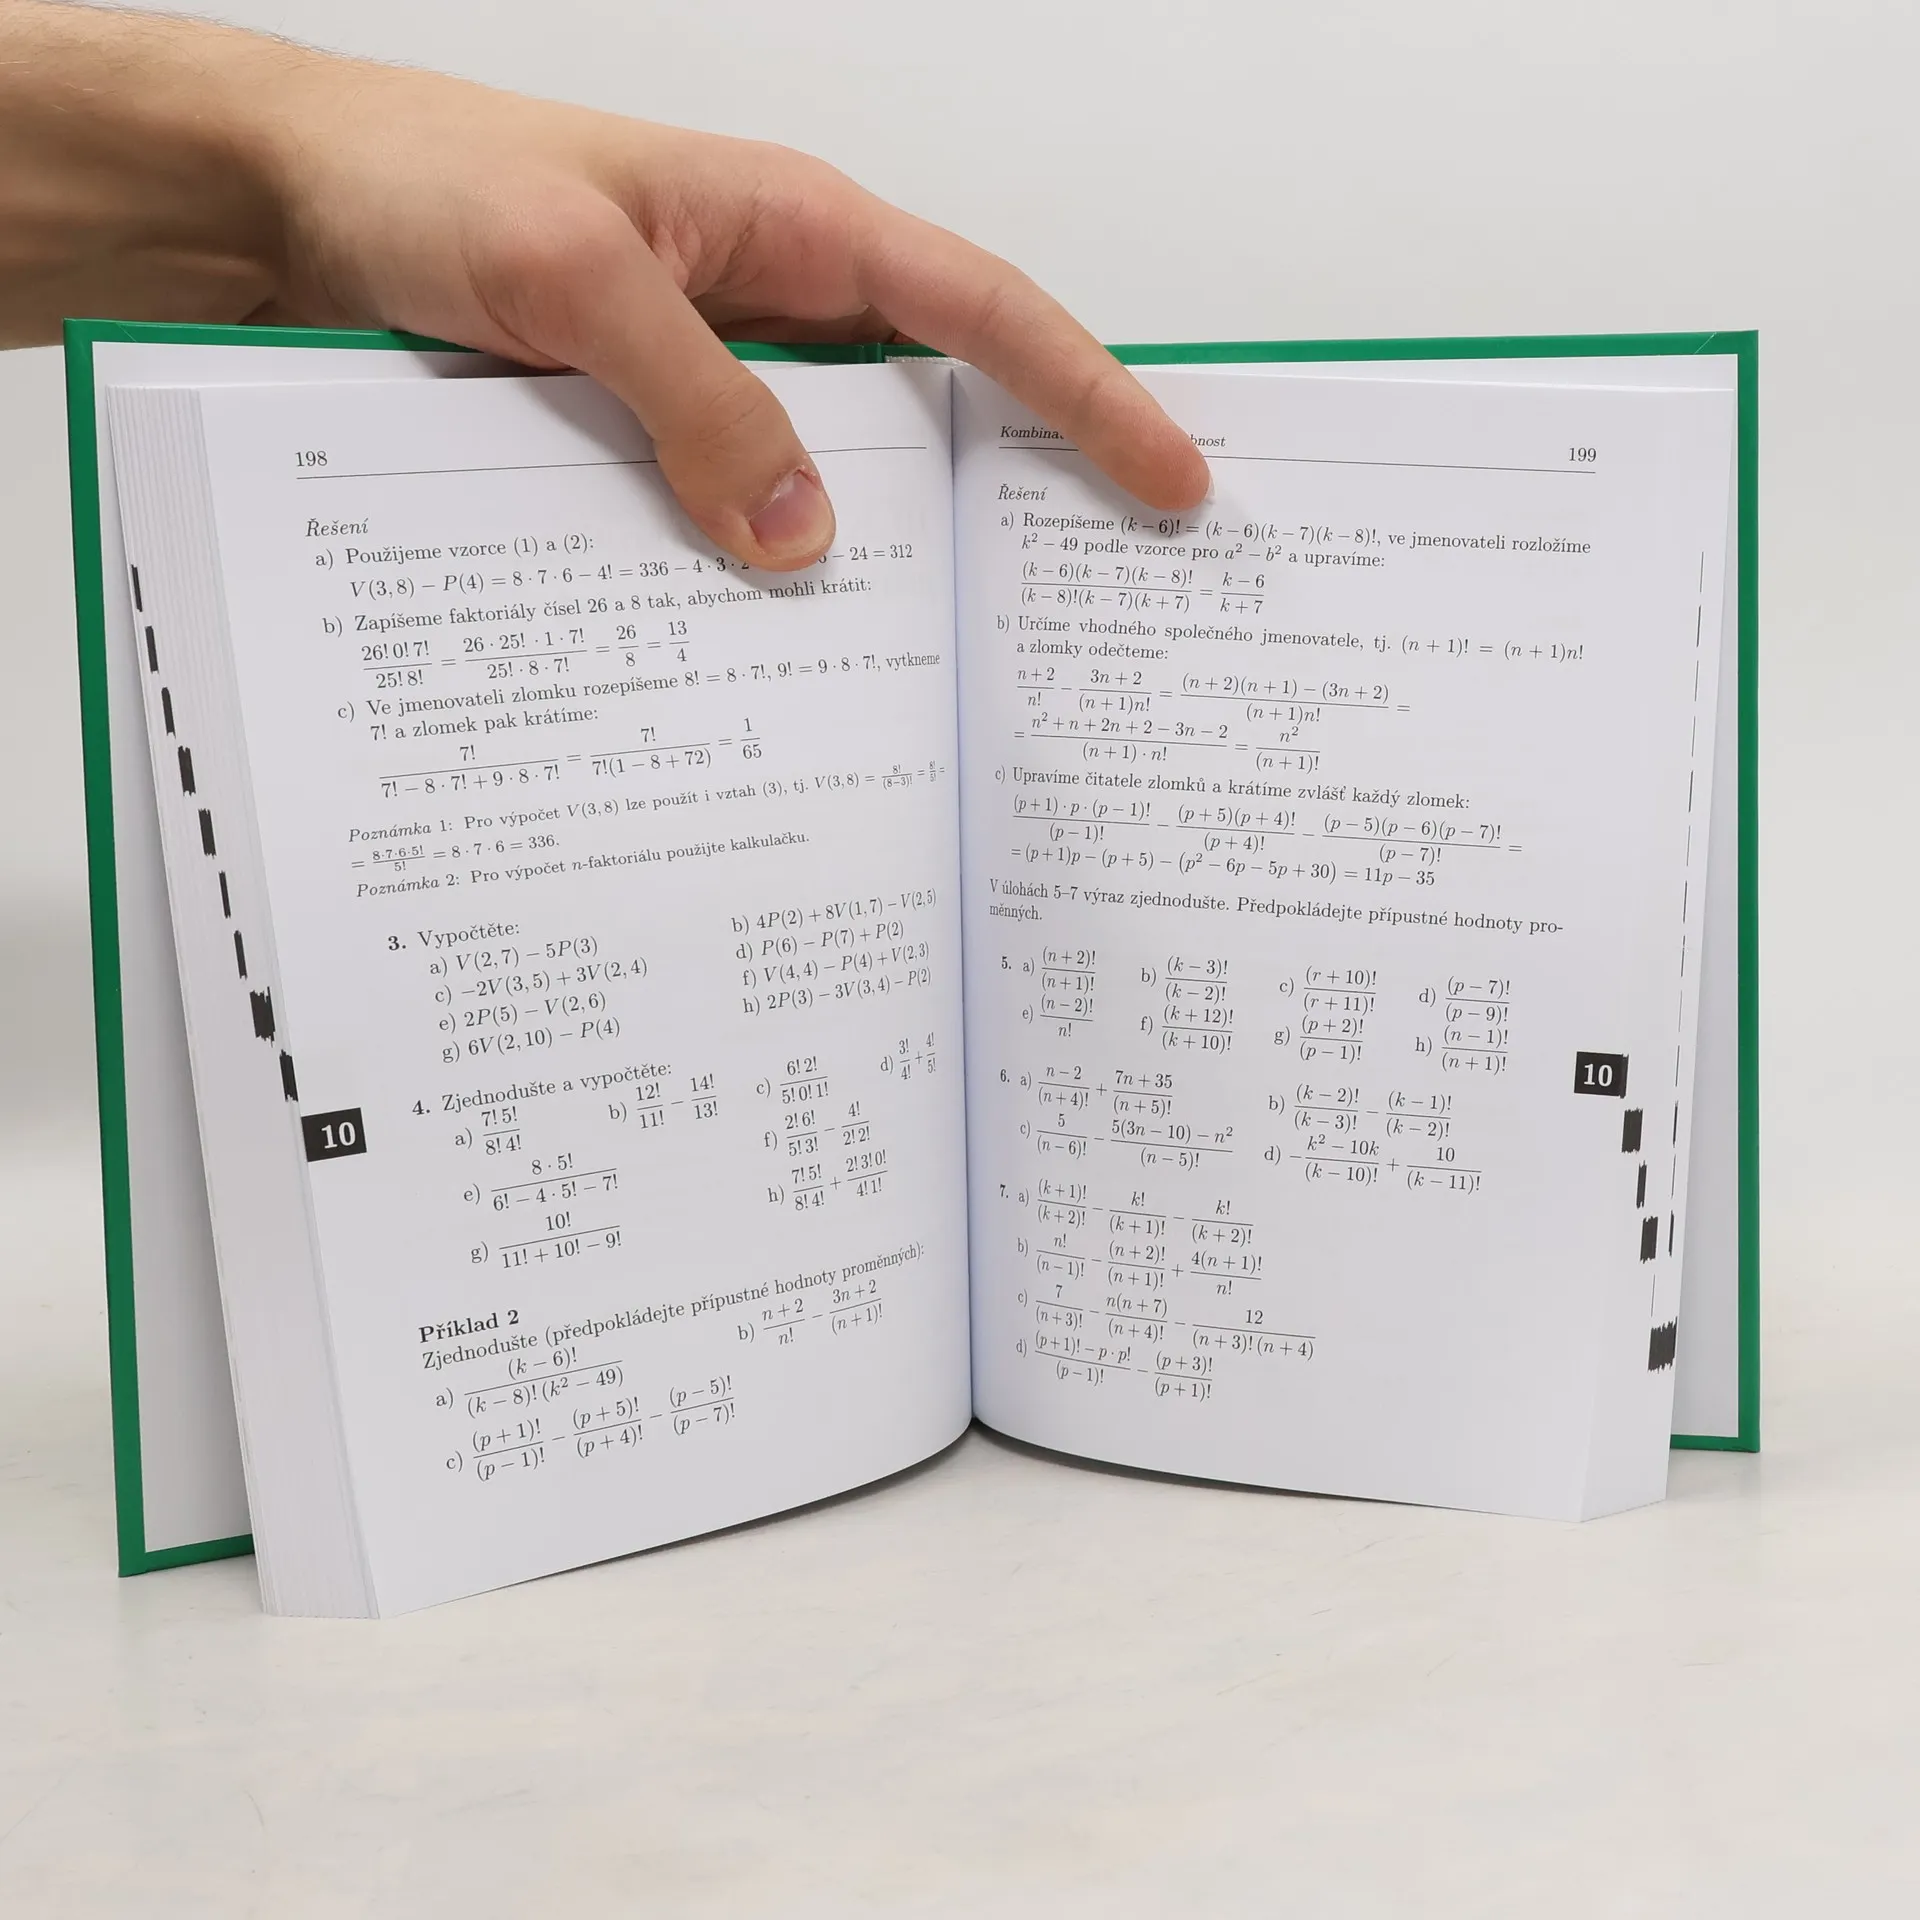 198
Řešení
a) Použijeme vzorce (1) a (2):
V(3,8) − P(4) = 8 · 7 · 6 − 4! = 336 − 4 · 3 · − 24 = 312
b) Zapíšeme faktoriály čísel 26 a 8 tak, abychom mohli krátit:
26! 0! 7! / 25! 8! = 26 · 25! · 1 · 7! / 25! · 8 · 7! = 26/8 = 13/4
c) Ve jmenovateli zlomku rozepíšeme 8! = 8 · 7!, 9! = 9 · 8 · 7!, vytkneme
7! a zlomek pak krátíme:
7! / (7! − 8 · 7! + 9 · 8 · 7!) = 7! / 7!(1 − 8 + 72) = 1/65
Poznámka 1: Pro výpočet V(3,8) lze použít i vztah (3), tj. V(3,8) = 8!/(8−3)! = 8!/5! =
= 8·7·6·5!/5! = 8 · 7 · 6 = 336.
Poznámka 2: Pro výpočet n-faktoriálu použijte kalkulačku.
3. Vypočtěte:
a) V(2,7) − 5P(3) b) 4P(2) + 8V(1,7) − V(2,5)
c) −2V(3,5) + 3V(2,4) d) P(6) − P(7) + P(2)
e) 2P(5) − V(2,6) f) V(4,4) − P(4) + V(2,3)
g) 6V(2,10) − P(4) h) 2P(3) − 3V(3,4) − P(2)
4. Zjednodušte a vypočtěte:
a) 7! 5! / 8! 4! b) 12!/11! − 14!/13! c) 6! 2! / 5! 0! 1! d) 3!/4! + 4!/5!
e) 8 · 5! / (6! − 4 · 5! − 7!) f) 2! 6! / 5! 3! − 4! / 2! 2!
g) 10! / (11! + 10! − 9!) h) 7! 5! / 8! 4! + 2! 3! 0! / 4! 1!
10
Příklad 2
Zjednodušte (předpokládejte přípustné hodnoty proměnných):
a) (k − 6)! / (k − 8)! (k² − 49) b) (n + 2)/n! − (3n + 2)/(n + 1)!
c) (p + 1)!/(p − 1)! − (p + 5)!/(p + 4)! − (p − 5)!/(p − 7)!
199
Řešení
a) Rozepíšeme (k − 6)! = (k − 6)(k − 7)(k − 8)!, ve jmenovateli rozložíme
k² − 49 podle vzorce pro a² − b² a upravíme:
(k − 6)(k − 7)(k − 8)! / (k − 8)!(k − 7)(k + 7) = (k − 6)/(k + 7)
b) Určíme vhodného společného jmenovatele, tj. (n + 1)! = (n + 1)n!
a zlomky odečteme:
(n + 2)/n! − (3n + 2)/(n + 1)n! = ((n + 2)(n + 1) − (3n + 2))/(n + 1)n! =
= (n² + n + 2n + 2 − 3n − 2)/(n + 1) · n! = n²/(n + 1)!
c) Upravíme čitatele zlomků a krátíme zvlášť každý zlomek:
(p + 1) · p · (p − 1)!/(p − 1)! − (p + 5)(p + 4)!/(p + 4)! − (p − 5)(p − 6)(p − 7)!/(p − 7)! =
= (p + 1)p − (p + 5) − (p² − 6p − 5p + 30) = 11p − 35
V úlohách 5–7 výraz zjednodušte. Předpokládejte přípustné hodnoty pro-
měnných.
5. a) (n + 2)!/(n + 1)! b) (k − 3)!/(k − 2)! c) (r + 10)!/(r + 11)! d) (p − 7)!/(p − 9)!
e) (n − 2)!/n! f) (k + 12)!/(k + 10)! g) (p + 2)!/(p − 1)! h) (n − 1)!/(n + 1)!
6. a) (n − 2)/(n + 4)! + (7n + 35)/(n + 5)! b) (k − 2)!/(k − 3)! − (k − 1)!/(k − 2)!
c) 5/(n − 6)! − (5(3n − 10) − n²)/(n − 5)! d) −(k² − 10k)/(k − 10)! + 10/(k − 11)!
7. a) (k + 1)!/(k + 2)! − k!/(k + 1)! − k!/(k + 2)!
b) n!/(n − 1)! − (n + 2)!/(n + 1)! + 4(n + 1)!/n!
c) 7/(n + 3)! − n(n + 7)/(n + 4)! − 12/(n + 3)! (n + 4)
d) ((p + 1)! − p · p!)/(p − 1)! − (p + 3)!/(p + 1)!
10